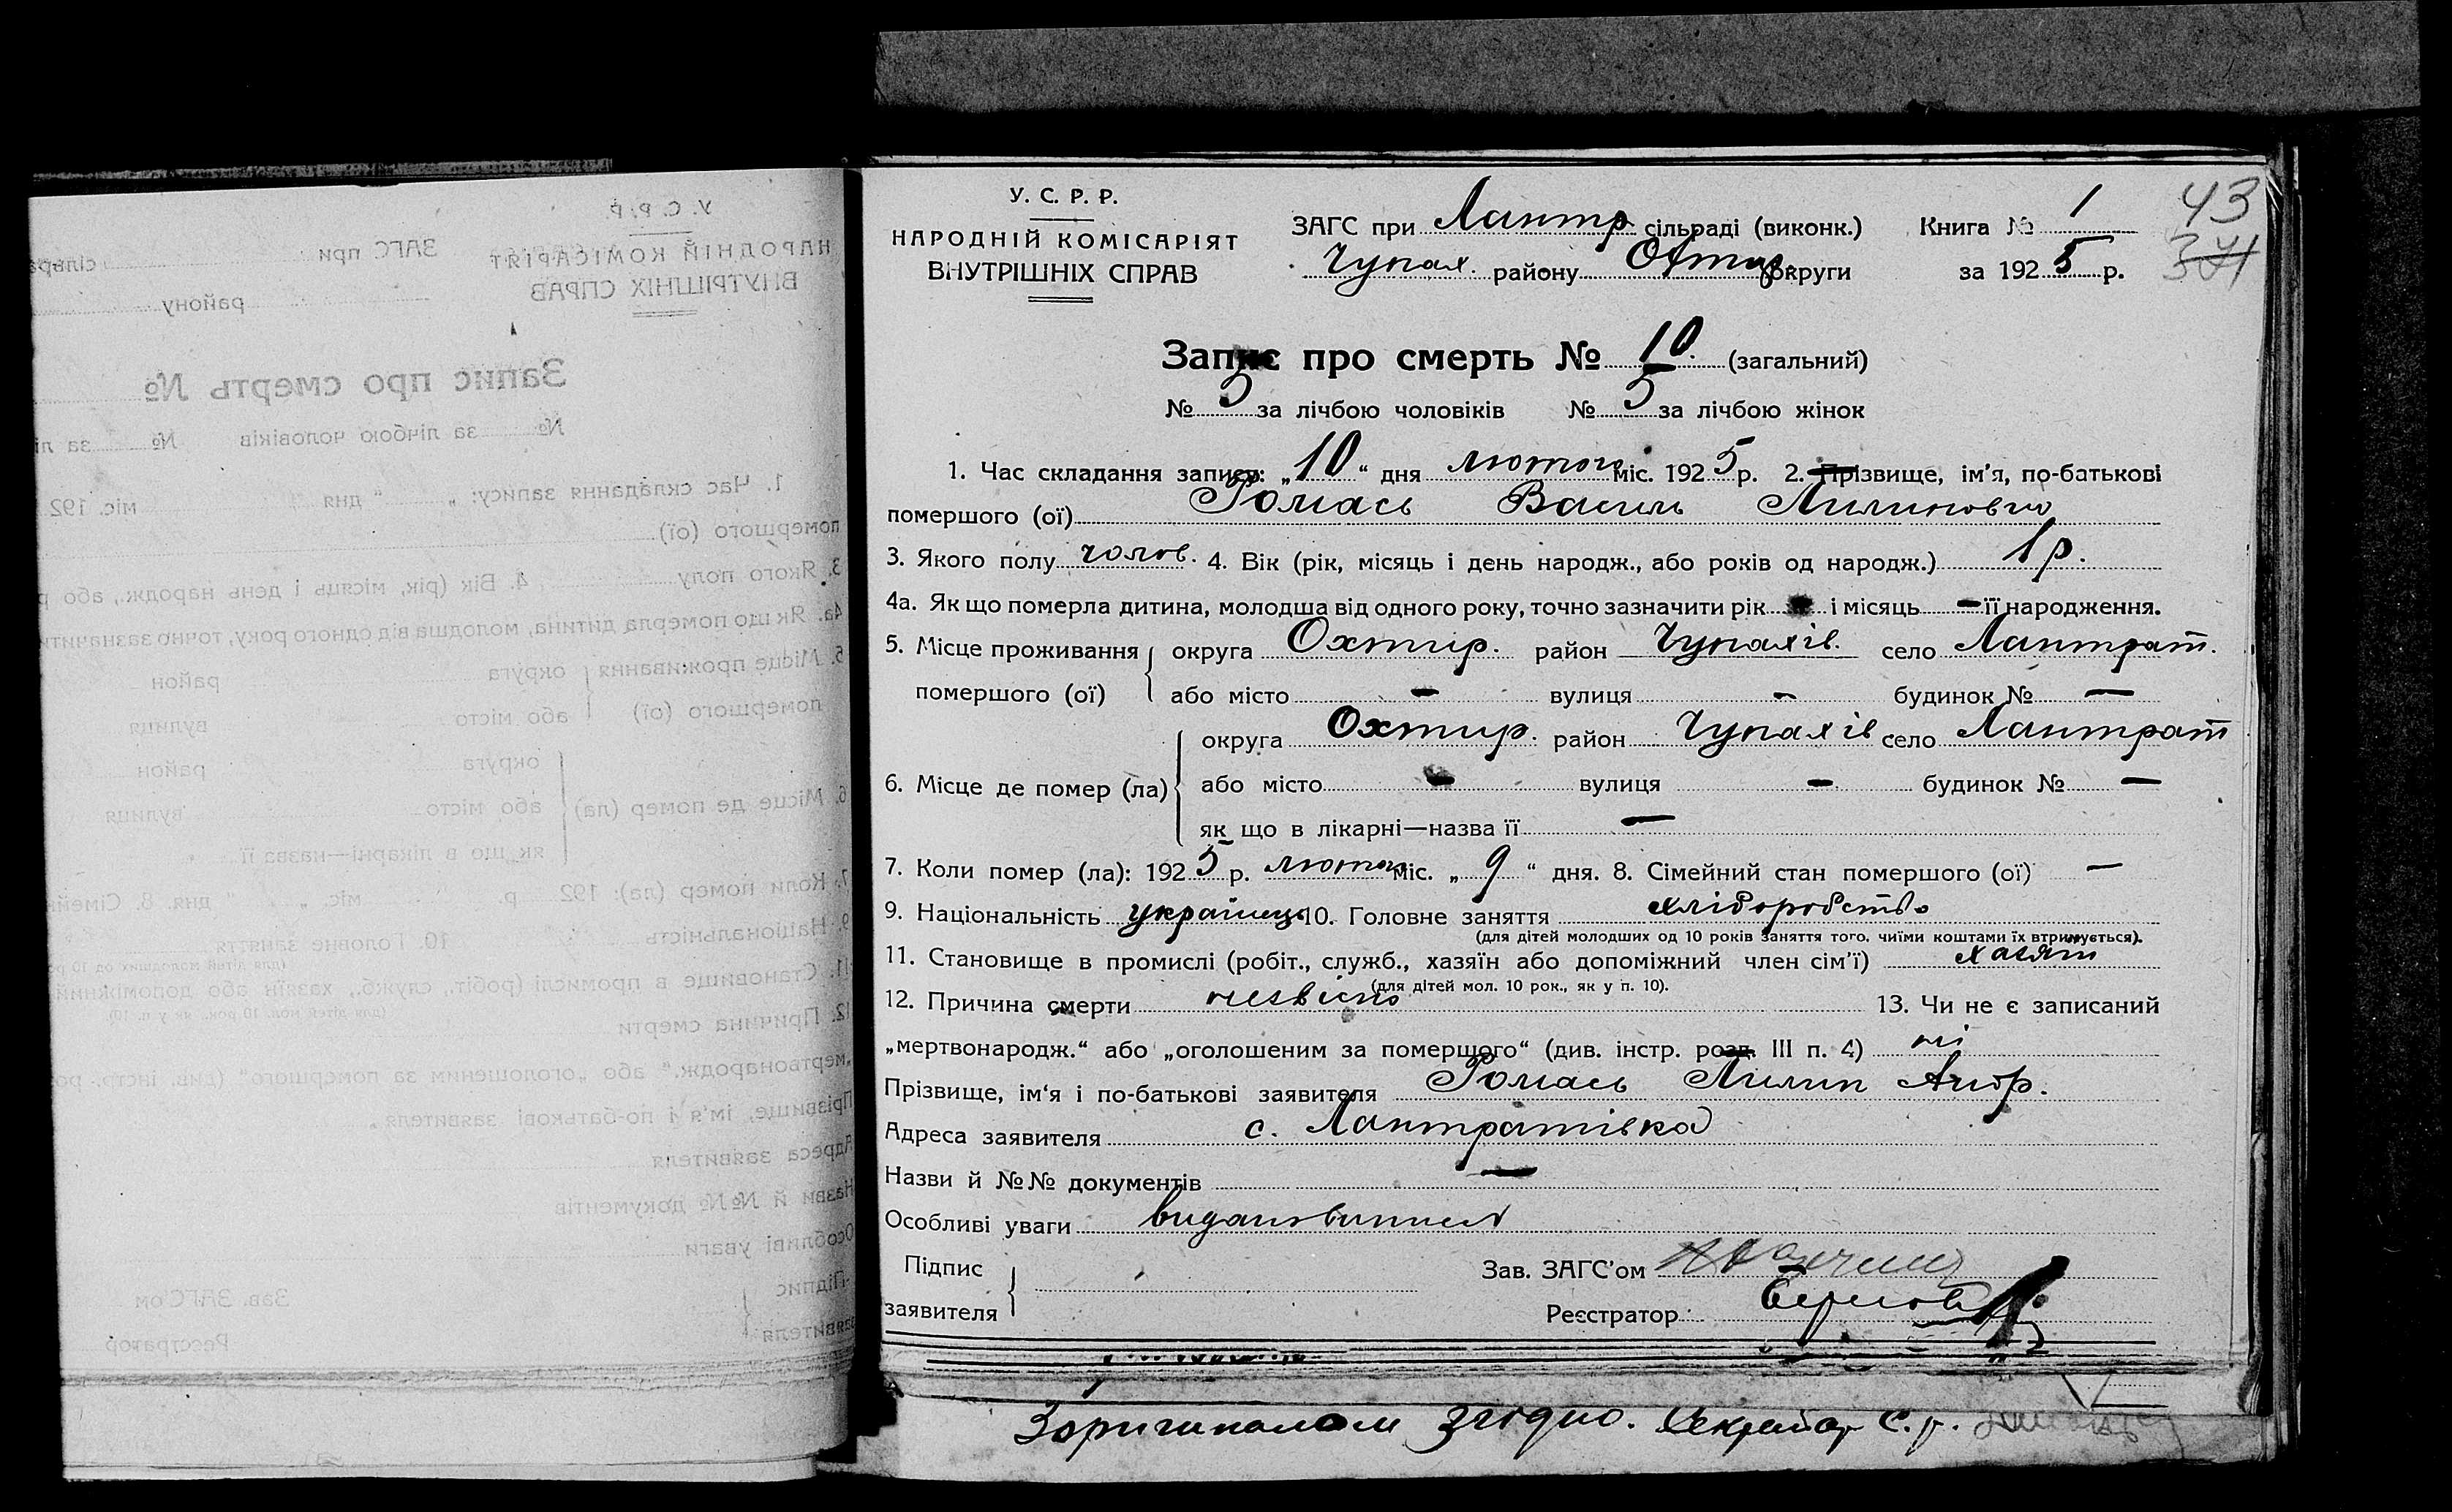 У. С. Р. Р.
НАРОДНІЙ КОМІСАРІЯТ
ВНУТРІШНІХ СПРАВ
ЗАГС при Лантр сільраді (виконк.) Книга № 1
43
371
Чупах. району Охтир. округи за 1925 р.
Запис про смерть № 10. (загальний)
№ 5 за лічбою чоловіків № 5 за лічбою жінок
1. Час складання запису: „10“ дня лютого міс. 1925 р. 2. Прізвище, ім'я, по-батькові
помершого (ої) Ромась Василь Пилипович
3. Якого полу чолов. 4. Вік (рік, місяць і день народж., або років од народж.) 1 р.
4а. Як що померла дитина, молодша від одного року, точно зазначити рік і місяць — її народження.
5. Місце проживання помершого (ої) округа Охтир. район Чупахів. село Лантрат.
або місто — вулиця — будинок № —
6. Місце де помер (ла) округа Охтир. район Чупахів село Лантрат
або місто — вулиця — будинок № —
як що в лікарні—назва її —
7. Коли помер (ла): 1925 р. лютого міс. „9“ дня. 8. Сімейний стан помершого (ої) —
9. Національність українець 10. Головне заняття хліборобство
(для дітей молодших од 10 років заняття того, чиїми коштами їх втримується).
11. Становище в промислі (робіт., служб., хазяїн або допоміжний член сім'ї) хазяїн
(для дітей мол. 10 рок., як у п. 10).
12. Причина смерти незвісно 13. Чи не є записаний
„мертвонародж.“ або „оголошеним за померщого“ (див. інстр. розд. III п. 4) ні
Прізвище, ім‘я і по-батькові заявителя Ромась Пилип Андр.
Адреса заявителя с. Лантратівка
Назви й №№ документів —
Особливі уваги
Підпис заявителя
Зав. ЗАГС'ом
Реєстратор
Зоригиналом згідно. Секретар С. р.